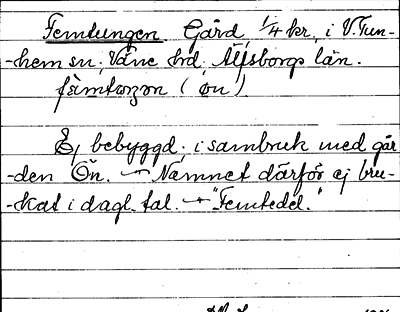 Femtungen Gård 1/4 kr. i V. Tun-
-hem sn; Väne hrd, Älfsborgs län.
(ön)
Ej bebyggd; i sambruk med går
-den Ön. — Namnet därför ej bru-
-kat i dagl. tal. — "Femtedel."